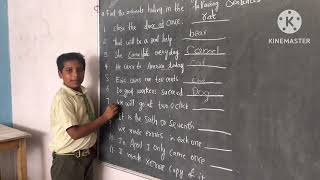 Find the animals hiding in the following sentences
1. Close the door at once. rat
2. That will be a real help bear
3. She came late everyday. Camel
4. He came to America today cat
5. Five cows
6. Do good workers succeed Dog
7. We will go at two o'clock
8. It is the sixth or seventh
9. we make errors in each one
10. In April I only came once
11. I made xerox copy of it
KINEMASTER